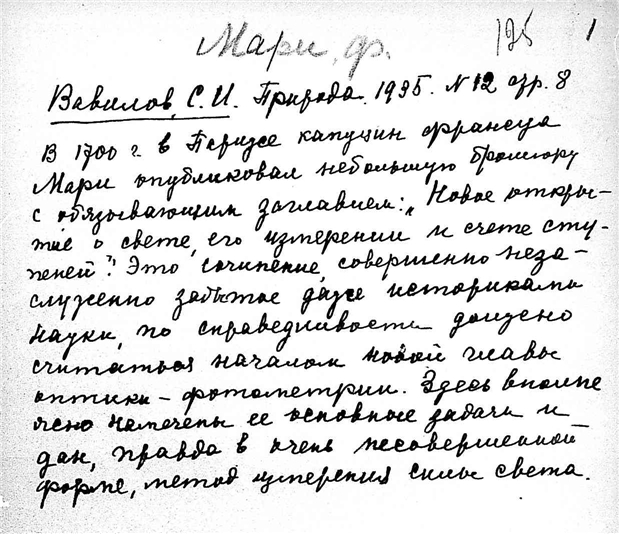 Мари, фр.
125 1
Вавилов, С.И. Природа. 1935. N 12 стр. 8
В 1700 г в Париже капуцин Франсуа
Мари опубликовал небольшую брошюру
с обязывающим заглавием: „Новое откры-
тие о свете, его измерении и счете сту-
пеней". Это сочинение, совершенно неза-
служенно забытое даже историками
науки, по справедливости должно
считаться началом новой главы
оптики – фотометрии. Здесь вполне
ясно намечены ее основные задачи и
дан, правда в очень несовершенной
форме, метод измерения силы света.